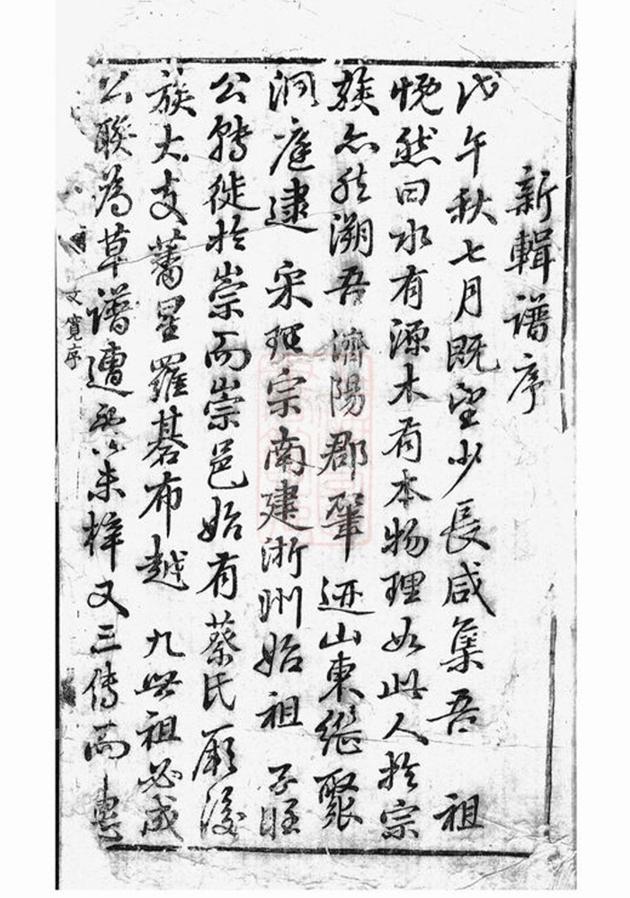 新輯譜序
戊午秋七月既望少長咸集吾 祖
愰然曰水有源木有本物理如此人於宗
族亦然溯吾濟陽郡肇迹山東繼聚
洞庭建 宋理宗南建浙州始祖 子旺
公轉徙於崇而崇邑始有蔡氏厥後
族大支蕃星羅碁布越 九世祖必成
公聯為草譜遭 未梓又三傳而
文寬序